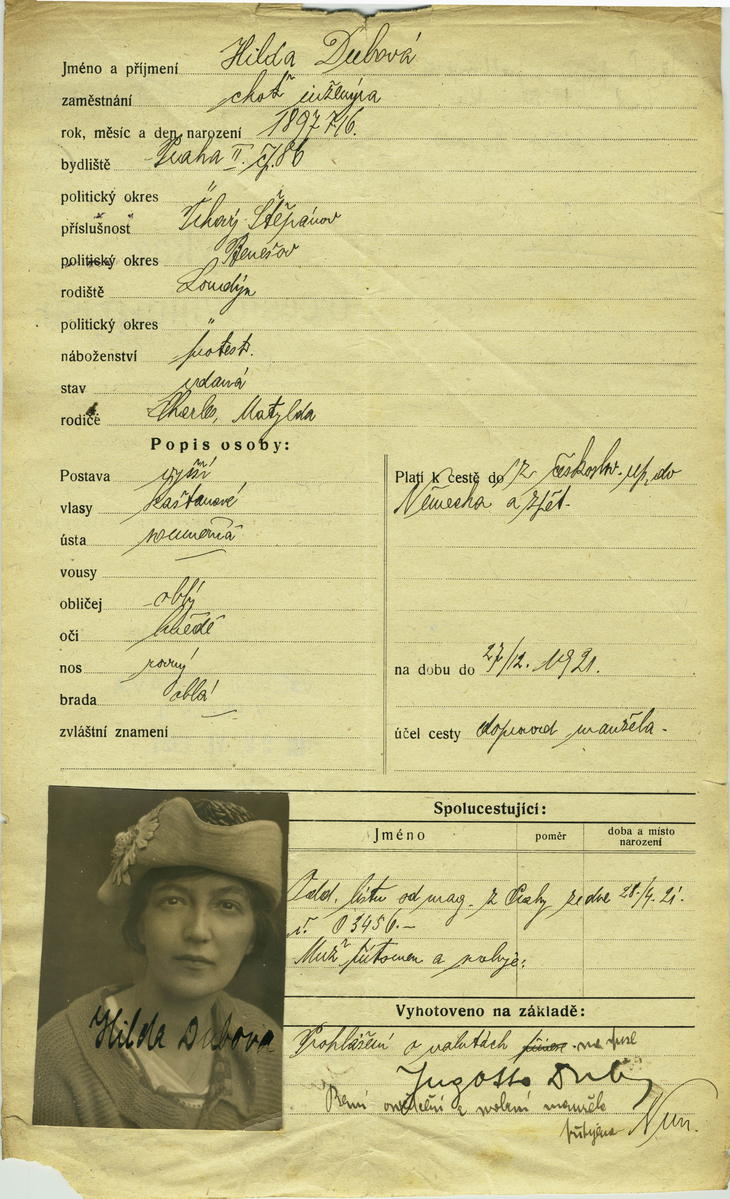 Jméno a příjmení Hilda Dubová
zaměstnání choť inženýra
rok, měsíc a den narození 1897 7/6.
bydliště Praha II. čj. 86
politický okres "
příslušnost Tchový Štěpánov
politický okres Benešov
rodiště Londýn
politický okres "
náboženství protest.
stav vdaná
rodiče Charles, Matylda
Popis osoby:
Postava vyšší
vlasy kaštanové
ústa souměrná
vousy
obličej oblý
oči hnědé
nos rovný
brada oblá
zvláštní znamení
Platí k cestě do z českoslov. rep. do
Německa a zpět.
na dobu do 27/12. 1921.
účel cesty doprovod manžela.
Spolucestující:
Jméno poměr doba a místo
narození
Odd. listu od mag. z Prahy ze dne 28./4. 21.
č. 03456.-
Muž přítomen a svoluje:
Vyhotoveno na základě:
Prohlášení o valutách na pase
Ing Otto Dub
a svolení manžela
Hilda Dubova